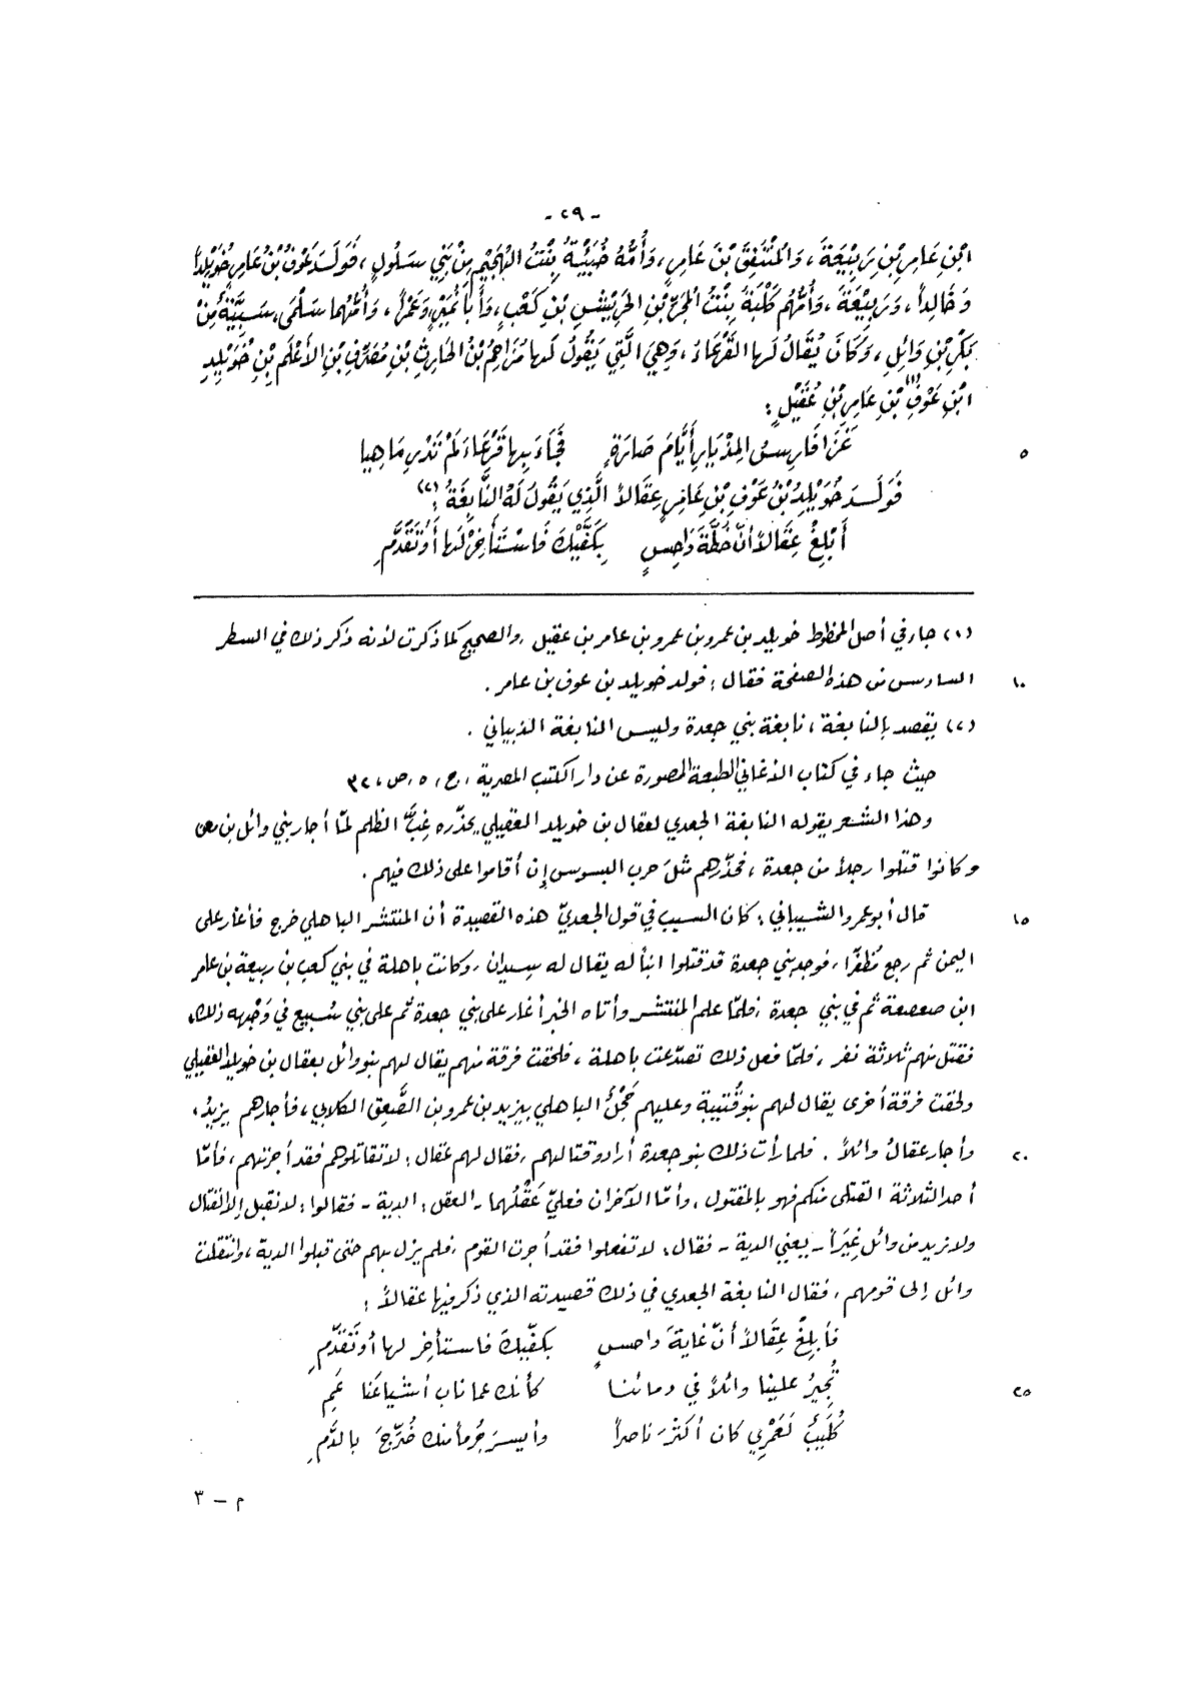 - ٢٩ -
ابْنِ عَامِرِ بْنِ رَبِيْعَةَ ، وَالمُنْتَفِقَ بْنَ عَامِرٍ ، وَأُمُّهُ خُبَيْئَةُ بِنْتُ الهُجَيْمِ مِنْ بَنِي سَلُولٍ ، فَوَلَدَ عَوْفُ بْنُ عَامِرٍ خُوَيْلِداً
وَخَالِداً ، وَرَبِيْعَةَ ، وَأُمُّهُم كَلْبَةُ بِنْتُ الحَرِيْشِ بْنِ كَعْبٍ ، وَأُمُّهُما سَلْمَى سَبِيَّةٌ مِنْ
بَكْرِ بْنِ وَائِلٍ ، وَكَانَ يُقَالُ لَها القَرْعَاءُ ، وَهِيَ الَّتِي يَقُولُ لَها مُزَاحِمُ بْنُ الحَارِثِ بْنِ مُصَرِّفِ بْنِ الأَعْلَمِ بْنِ خُوَيْلِدِ
ابْنِ عَوْفِ (١) بْنِ عَامِرِ بْنِ عُقَيْلٍ :
غَزَا فَارِسُ المِذْيَارِ أَيَّامَ صَارَةٍ فَجَاءَ بِها قَرْعَاءَ لَمْ تَدْرِ مَاهِيا ٥
فَوَلَدَ خُوَيْلِدُ بْنُ عَوْفِ بْنِ عَامِرٍ عِقَالاً الَّذِي يَقُولُ لَهُ النَّابِغَةُ : (٢)
أَبْلِغْ عِقَالاً أَنَّ خُطَّةَ دَاحِسٍ بِكَفَّيْكَ فَاسْتَأْخِرْ لَها أَوْ تَقَدَّمِ
(١) جاء في أصل المخطوط خويلد بن عمرو بن عمرو بن عامر بن عقيل ، والصحيح كما ذكرت لأنه ذكر ذلك في السطر
السادس من هذه الصفحة فقال : فولد خويلد بن عوف بن عامر . ١٠
(٢) يقصد بالنابغة ، نابغة بني جعدة وليس النابغة الذبياني .
حيث جاء في كتاب الأغاني الطبعة المصورة عن دار الكتب المصرية ، ج ، ٥ ، ص ، ٣٢
وهذا الشعر يقوله النابغة الجعدي لعقال بن خويلد العقيلي يحذّره غِبَّ الظلم لمّا أجار بني وائل بن معن
وكانوا قتلوا رجلاً من جعدة ، فحذّرهم مثلَ حرب البسوس إن أقاموا على ذلك فيهم .
قال أبو عمرو الشيباني : كان السبب في قول الجعديّ هذه القصيدة أن المنتشر الباهلي خرج فأغار على ١٥
اليمن ثم رجع مُظفّرا ، فوجد بني جعدة قد قتلوا ابناً له يقال له سيدان ، وكانت باهلة في بني كعب بن ربيعة بن عامر
ابن صعصعة ثم في بني جعدة ، فلمّا علم المنتشر وأتاه الخبر أغار على بني جعدة ثم على بني سُبيع في وَجْهه ذلك،
فقتل منهم ثلاثة نفر ، فلمّا فعل ذلك تصدّعت باهلة ، فلحقت فرقة منهم يقال لهم بنو وائل بعقال بن خويلد العقيلي
ولحقت فرقة أخرى يقال لهم بنو قُتيبة وعليهم حَجْلُ الباهلي بيزيد بن عمرو بن الصَّعِق الكلابي ، فأجارهم يزيدُ ،
وأجار عقالٌ وائلاً . فلما رأت ذلك بنو جعدة أرادوا قتالهم ، فقال لهم عقال : لا تقاتلوهم فقد أجرتهم ، فأمّا ٢٠
أحد الثلاثة القتلى منكم فهو بالمقتول ، وأمّا الآخران فعليّ عَقْلُهما - العقل : الدية - فقالوا : لا نقبل إلا القتال
ولا نريد من وائل غِيَراً - يعني الدية - فقال : لا تفعلوا فقد أجرت القوم ، فلم يزل بهم حتى قبلوا الديّة ، وانتقلت
وائل إلى قومهم ، فقال النابغة الجعدي في ذلك قصيدته الذي ذكر فيها عقالاً :
فأبلغْ عِقَالاً أنّ غايةَ داحسٍ بكفّيكَ فاستأخِر لها أو تَقدّمِ
تُجيرُ علينا وائلاً في دمائنا كأنك عما ناب أشياعَنا عَمِ ٢٥
كُلَيبٌ لَعَمْرِي كان أكثرَ ناصراً وأيسرَ جُرماً منك ضُرِّجَ بالدّمِ
م - ٣